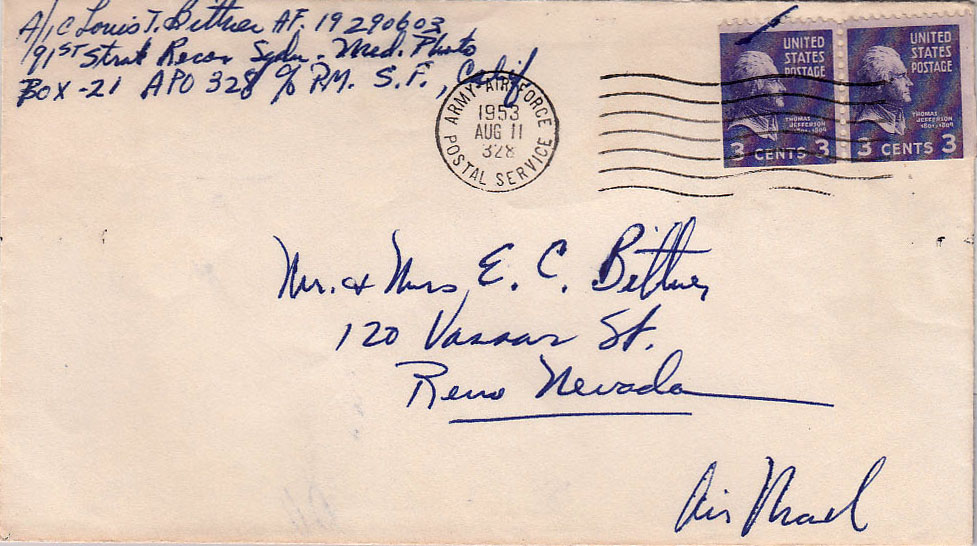 A/1C Louis T. Bittner AF. 19290603
91ST Strat Recon Sqdn. - Med. Photo
BOX - 21 APO 328 c/o PM. S. F., Calif
ARMY-AIR FORCE
1953
AUG 11
328
POSTAL SERVICE
UNITED
STATES
POSTAGE
THOMAS
JEFFERSON
1801-1809
3 CENTS 3
UNITED
STATES
POSTAGE
THOMAS
JEFFERSON
1801-1809
3 CENTS 3
Mr. & Mrs E. C. Bittner
120 Vassar St.
Reno Nevada
Air Mail